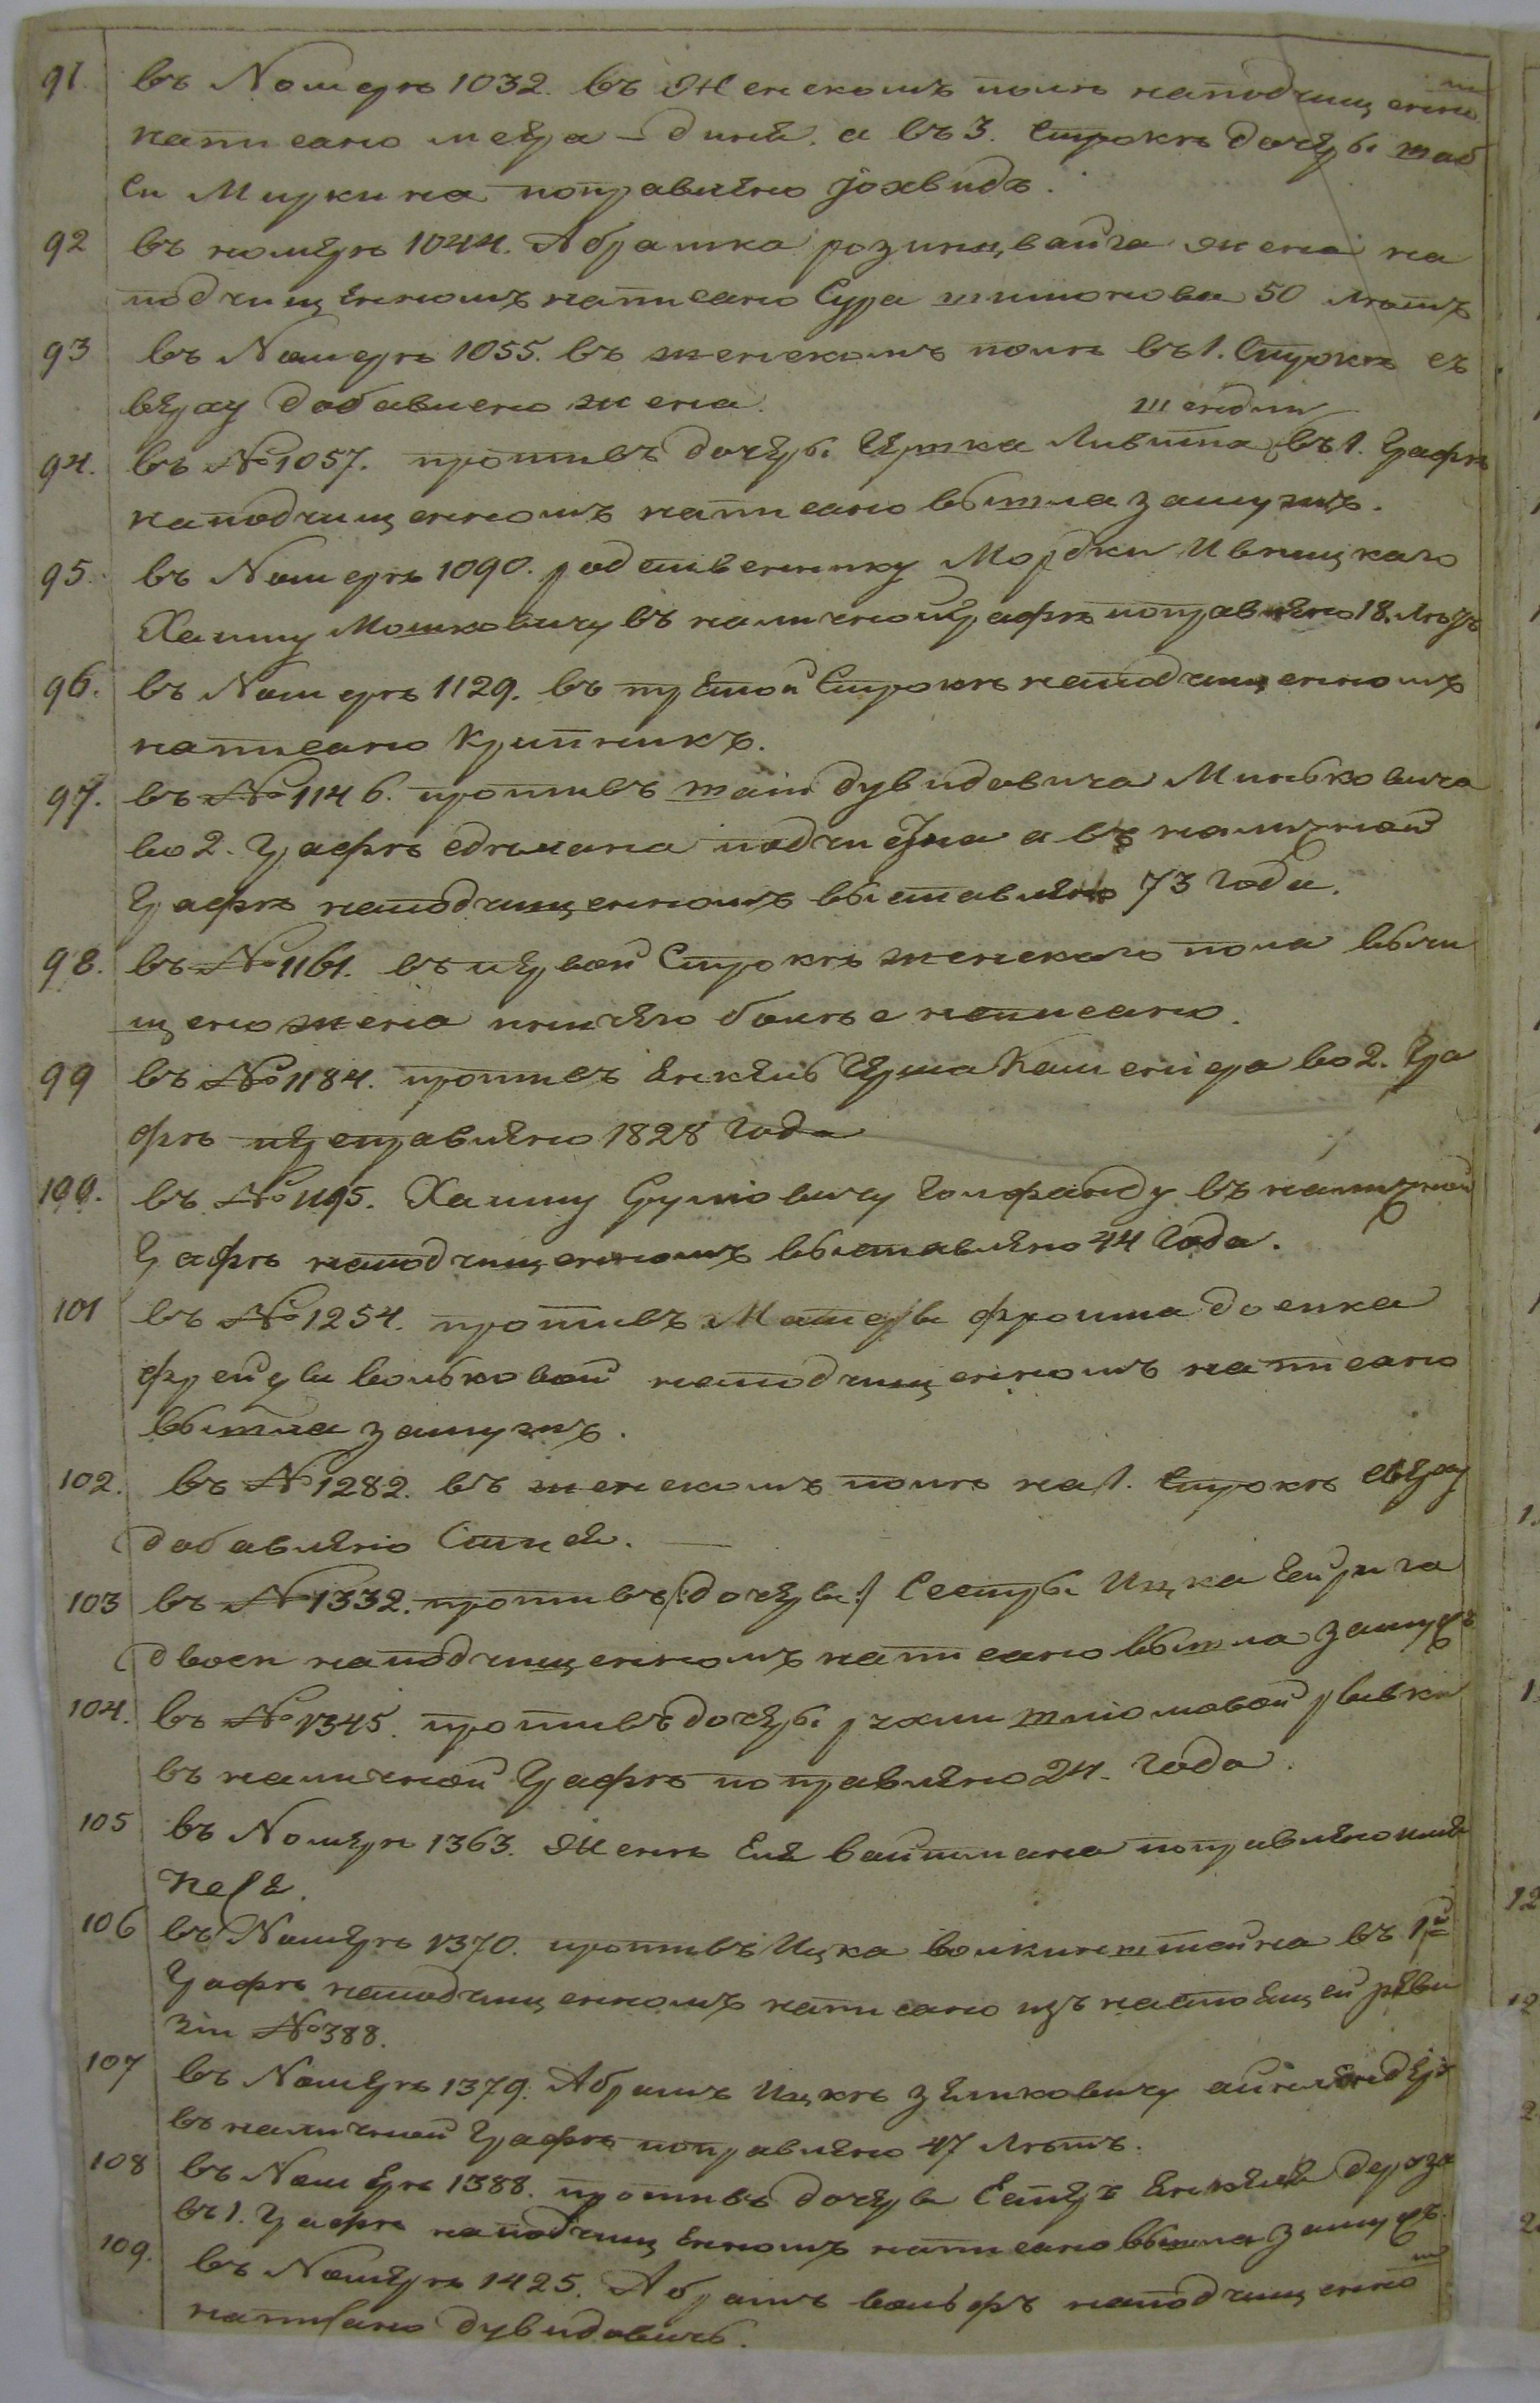 91. въ Номерѣ 1032. въ Женскомъ полѣ на подчищенно
написано мера-диня. а въ 3. строкѣ дочеры
си Миркина поправлено Іохвидъ.
92 въ номерѣ 1044. Абрашка розинцвайга жена на
подчищенномъ написано Сура шимонова 50 лѣтъ
93 въ Номерѣ 1055. въ женскомъ полѣ въ 1. Строкѣ съ
верху добавлено жена.
шендли
94. въ № 1057. противъ дочеры Гершка Лившица въ 1. Графѣ
на подчищенномъ написано вышла замужъ.
95. въ Номерѣ 1090. родственнику Мордки Ивницкаго
Хаиму Мошковичу въ наличной графѣ поправлено 18. лѣтъ
96. въ Номерѣ 1129. въ третой Строкѣ на подчищенномъ
написано Крипникъ.
97. въ № 1146. противъ дувидовича Миньковича
во 2. Графѣ сдѣлана подчистка а въ наличной
Графѣ на подчищенномъ выставлено 73 года.
98. въ № 1161. въ первой Строкѣ женскаго пола вычи
щено жена и ничего болѣе написано.
99 въ № 1184. противъ Енкель Герша Каменира во 2. Гра
фѣ переправлено 1828 года
100. въ № 1195. Хаиму Сруліовичу Голфанду въ наличной
Графѣ на подчищенномъ выставлено 44 года.
101 въ № 1254. противъ Матери Фроима доенка
фрейды вольковой на подчищенномъ написано
вышла замужъ.
102. въ № 1282. въ женскомъ полѣ на 1. строкѣ сверху
добавлено Стися.
103 въ № 1332. противъ /:дочери:/ Сестры Ицка
двоси на подчищенномъ написано вышла замужъ
104. въ № 1345. противъ дочеры рухли шліомовой ривки
въ наличной Графѣ поправлено 24. года.
105 въ Номерѣ 1363. Женѣ Еля вайтмана поправлено имя
Песя.
106 въ Номерѣ 1370. противъ Ицка волкинштейна въ 1й
Графѣ на подчищенномъ написано изъ настоящей реви
зіи № 388.
107 въ Номерѣ 1379. Абрамъ Ицкѣ зеликовичу
въ наличной Графѣ поправлено 47 лѣтъ.
108 въ Номерѣ 1388. противъ дочери Естеръ Енкеля дероза
въ 1. Графѣ на подчищенномъ написано вышла замужъ.
109. въ Номерѣ 1425. Абрамъ вольфъ на подчищенно
написано дувидовичъ.